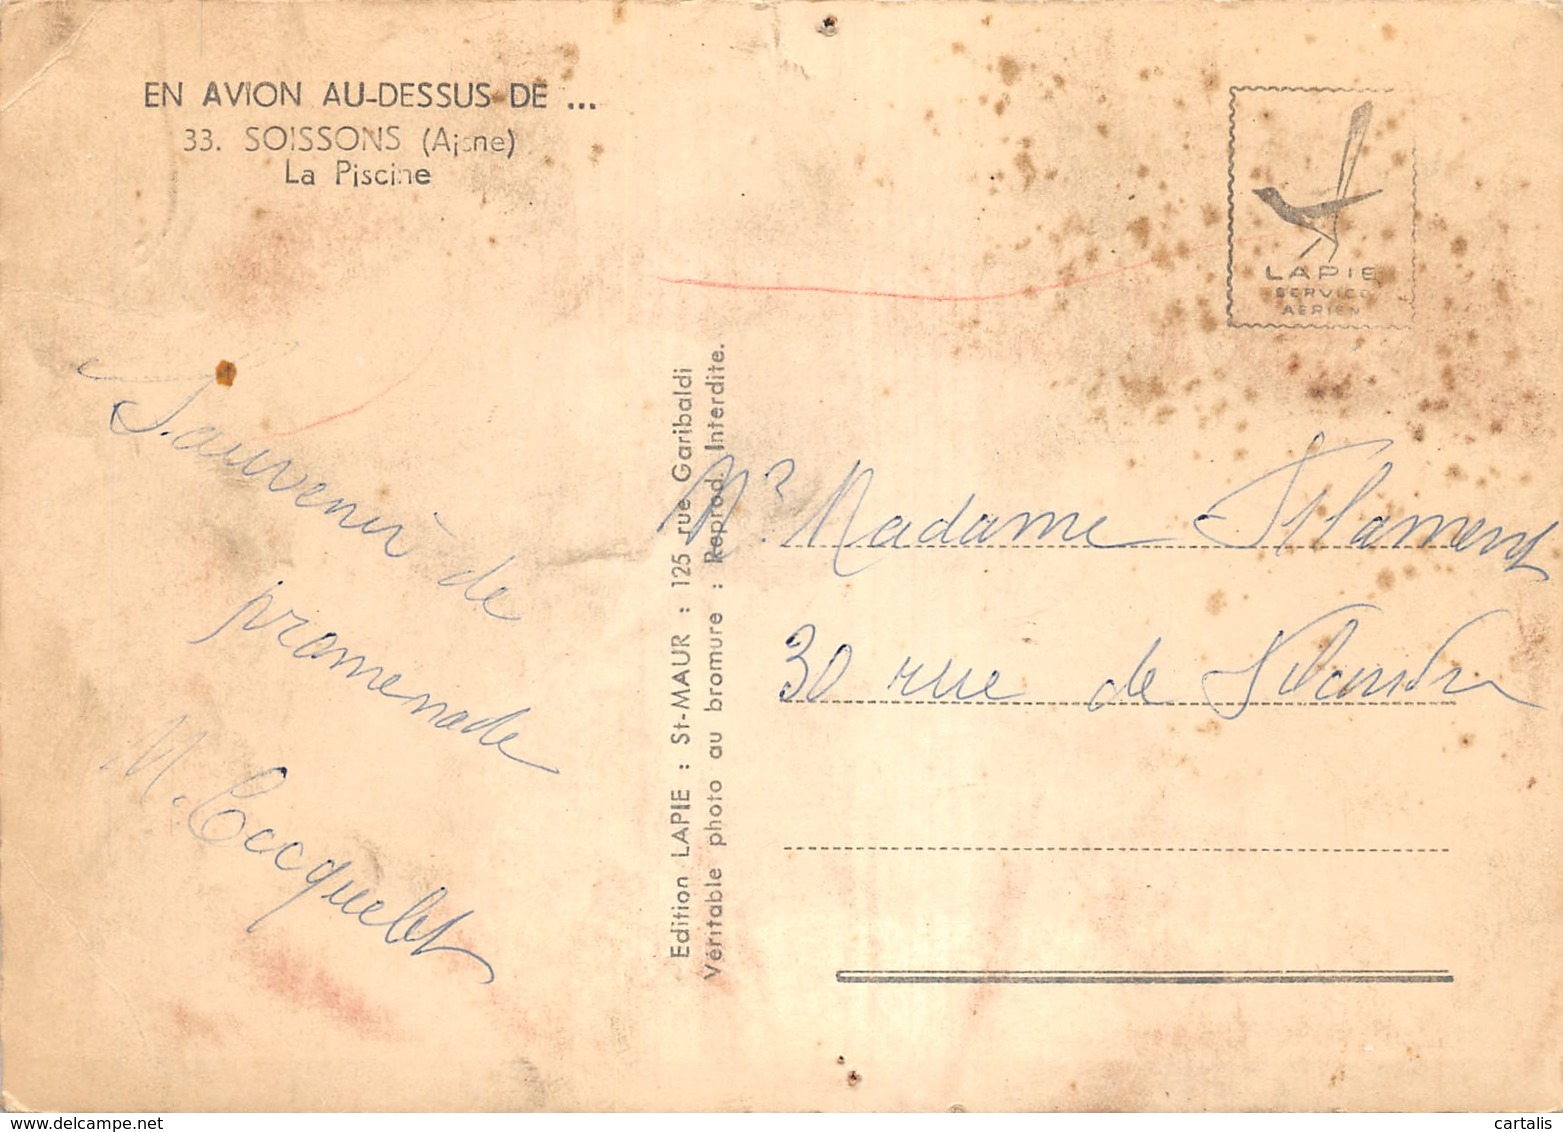 EN AVION AU-DESSUS DE ...
33. SOISSONS (Aisne)
La Piscine
LAPIE
SERVICE
AERIEN
Souvenir de
promenade
M. Cocquelet
Edition LAPIE : St-MAUR : 125 rue Garibaldi
Véritable photo au bromure : Reprod. Interdite.
Mr Madame Flament
30 rue de
www.cartalis.com
cartalis